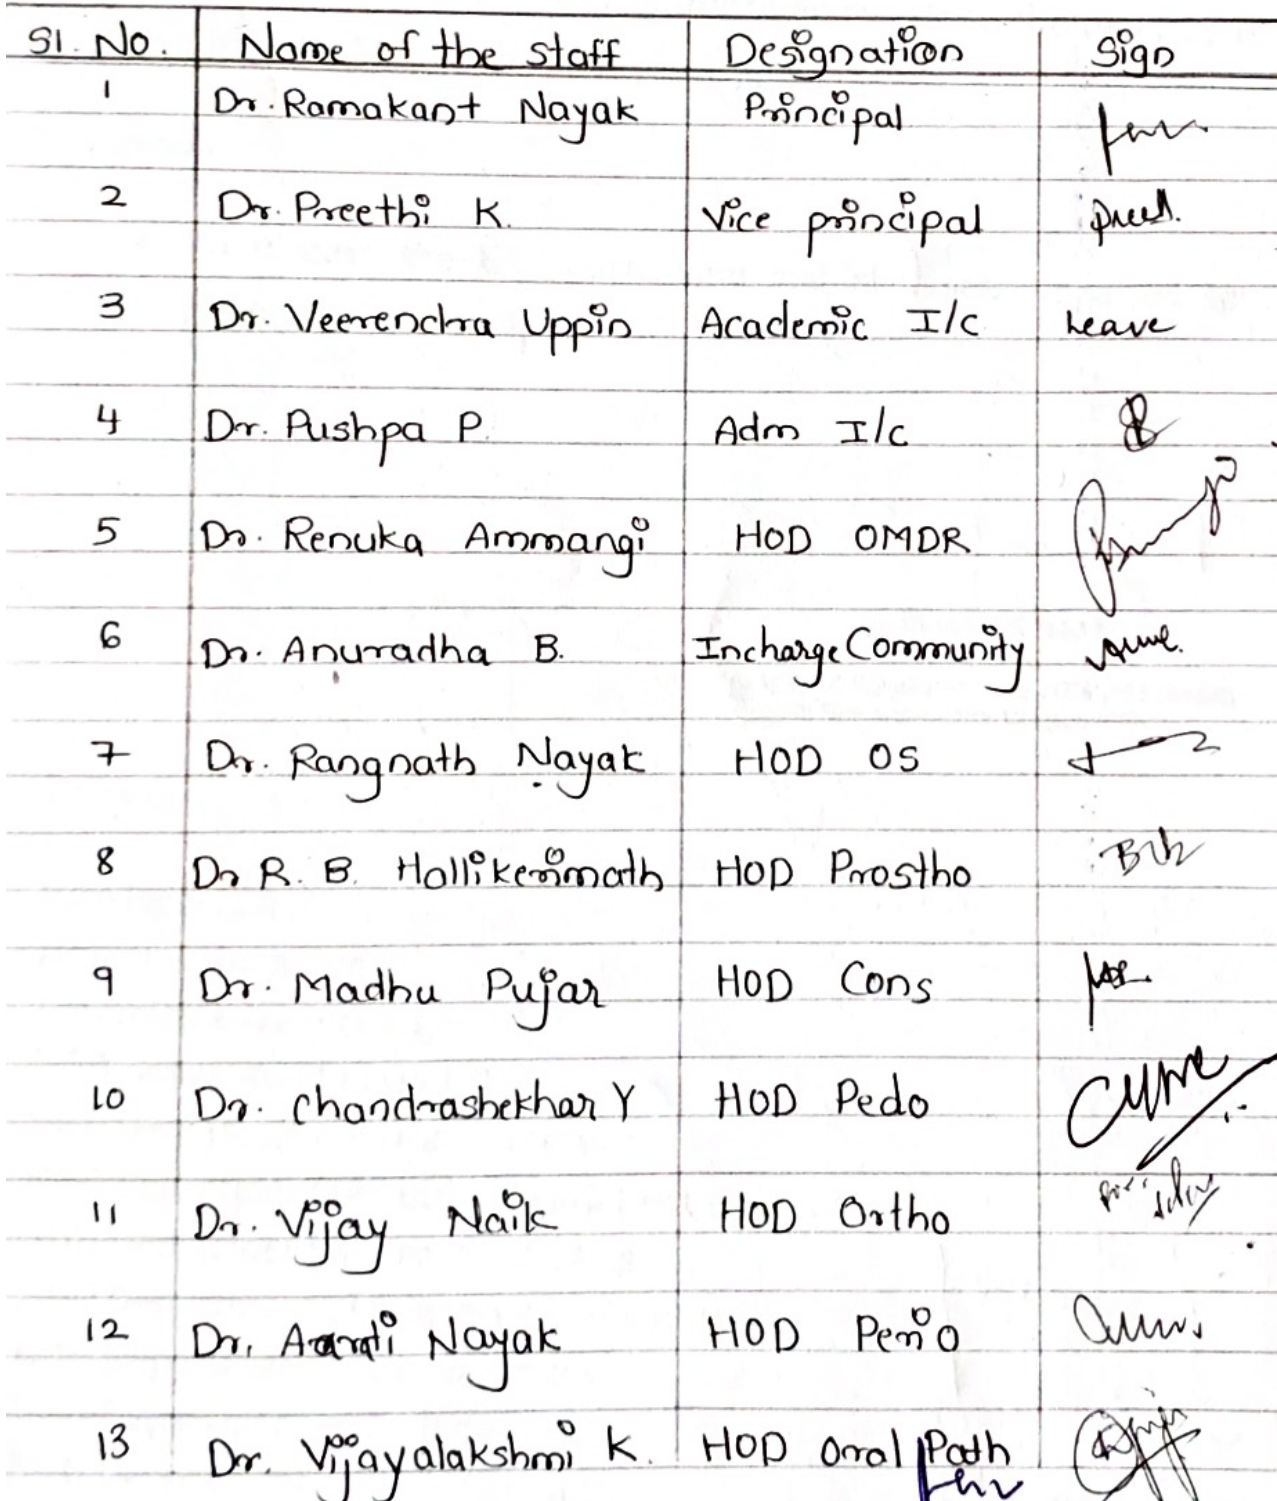 Sl. No. Name of the staff Designation Sign
1 Dr. Ramakant Nayak Principal
2 Dr. Preethi K. Vice principal
3 Dr. Veerendra Uppin Academic I/c Leave
4 Dr. Pushpa P. Adm I/c
5 Dr. Renuka Ammangi HOD OMDR
6 Dr. Anuradha B. Incharge Community
7 Dr. Rangnath Nayak HOD OS
8 Dr R. B. Hallikerimath HOD Prostho
9 Dr. Madhu Pujar HOD Cons
10 Dr. Chandrashekhar Y HOD Pedo
11 Dr. Vijay Naik HOD Ortho
12 Dr. Aarati Nayak HOD Perio
13 Dr. Vijayalakshmi K. HOD Oral Path